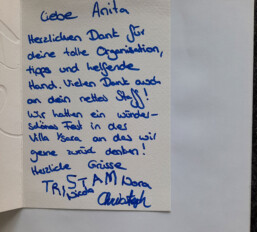 Liebe Anita
Herzlichen Dank für
deine tolle Organisation,
tipps und helfende
Hand. Vielen Dank auch
an dein nettes Staff!
Wir hatten ein wunder-
schönes Fest in der
Villa an das wir
gerne zurück denken!
Herzliche Grüsse
TRISTAM Nora
Nicola Christoph